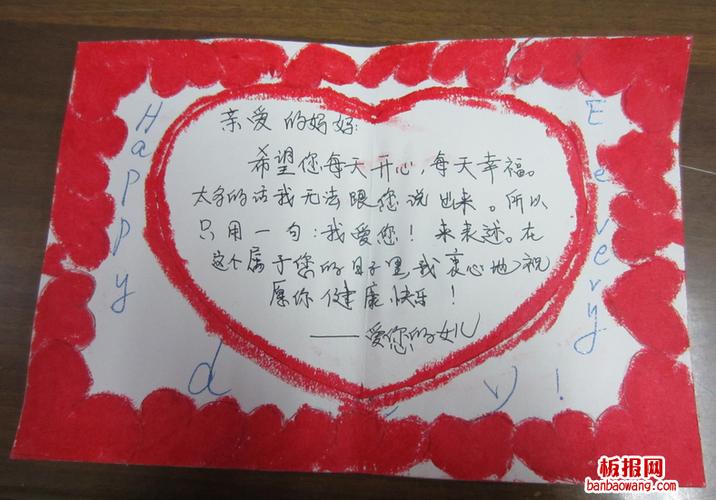 亲爱的妈妈:
希望您每天开心,每天幸福。
太多的话我无法跟您说出来。所以
只用一句:我爱您!来表述。在
这个属于您的日子里我衷心地祝
愿你健康快乐!
——爱您的女儿
Happy
Every
d y !
板报网
banbaowang.com